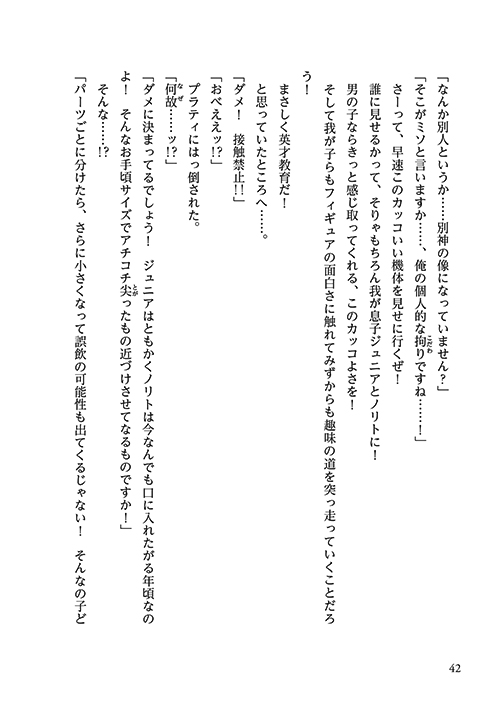 「なんか別人というか……別神の像になっていません？」
「そこがミソと言いますか……、俺の個人的な拘りですね……！」
さーって、早速このカッコいい機体を見せに行くぜ！
誰に見せるかって、そりゃもちろん我が息子ジュニアとノリトに！
男の子ならきっと感じ取ってくれる、このカッコよさを！
そして我が子らもフィギュアの面白さに触れてみずからも趣味の道を突っ走っていくことだろ
う！
まさしく英才教育だ！
と思っていたところへ……。
「ダメ！　接触禁止!!」
「おべええッ!?」
プラティにはっ倒された。
「何故……ッ!?」
「ダメに決まってるでしょう！　ジュニアはともかくノリトは今なんでも口に入れたがる年頃なの
よ！　そんなお手頃サイズでアチコチ尖ったもの近づけさせてなるものですか！」
そんな……!?
「パーツごとに分けたら、さらに小さくなって誤飲の可能性も出てくるじゃない！　そんなの子ど
42